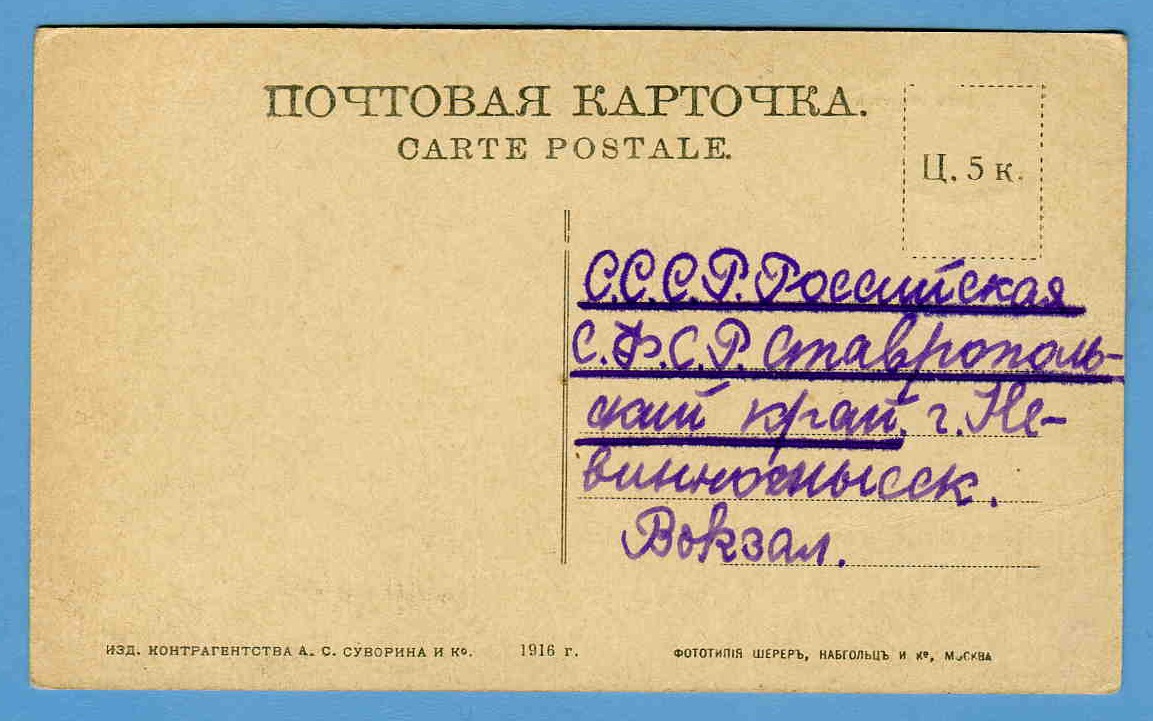 ПОЧТОВАЯ КАРТОЧКА.
CARTE POSTALE.
Ц. 5 к.
С.С.С.Р. Российская
С.Ф.С.Р. Ставрополь-
ский край. г. Не-
винномысск.
Вокзал.
ИЗД. КОНТРАГЕНТСТВА А. С. СУВОРИНА И Ко. 1916 г. ФОТОТИПІЯ ШЕРЕРЪ, НАБГОЛЬЦЪ И Ко, МОСКВА